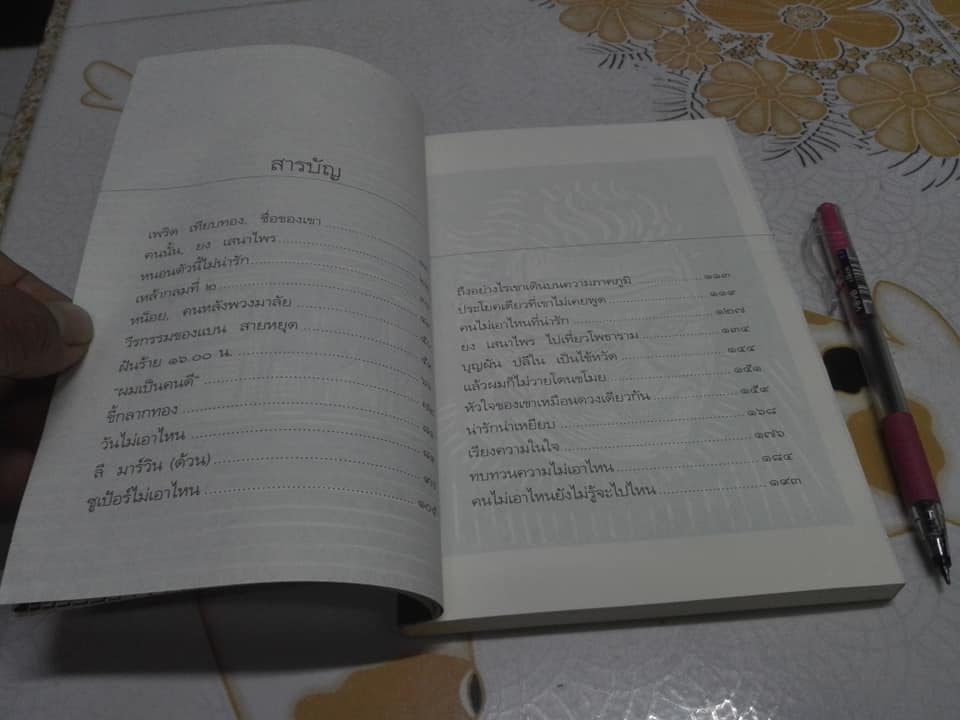 สารบัญ
เพริด เทียบทอง, ชื่อของเขา
คนนั้น, ยง เสนาไพร
หนอนตัวนี้ไม่น่ารัก
เหล้ากลมที่ ๒
หน็อย, คนหลังพวงมาลัย
วีรกรรมของแบน สายหยุด
ฝันร้าย ๑๖.๐๐ น.
"ผมเป็นคนดี"
ขี้กลากทอง
วันไม่เอาไหน
ลี มาร์วิน (ด้วน)
ซูเปอร์ไม่เอาไหน ๑๐๕
ถึงอย่างไรเขาเดินบนความภาคภูมิ ๑๑๓
ประโยคเดียวที่เขาไม่เคยพูด ๑๑๙
คนไม่เอาไหนที่น่ารัก ๑๒๗
ยง เสนาไพร ไปเที่ยวโพธาราม ๑๓๔
บุญผัน ปลีใน เป็นไข้หวัด ๑๔๔
แล้วผมก็ไม่วายโดนขโมย ๑๕๑
หัวใจของเขาเหมือนดวงเดียวกัน ๑๕๙
น่ารักน่าเหยียบ ๑๖๘
เรียงความในใจ ๑๗๖
ทบทวนความไม่เอาไหน ๑๘๔
คนไม่เอาไหนยังไม่รู้จะไปไหน ๑๙๓